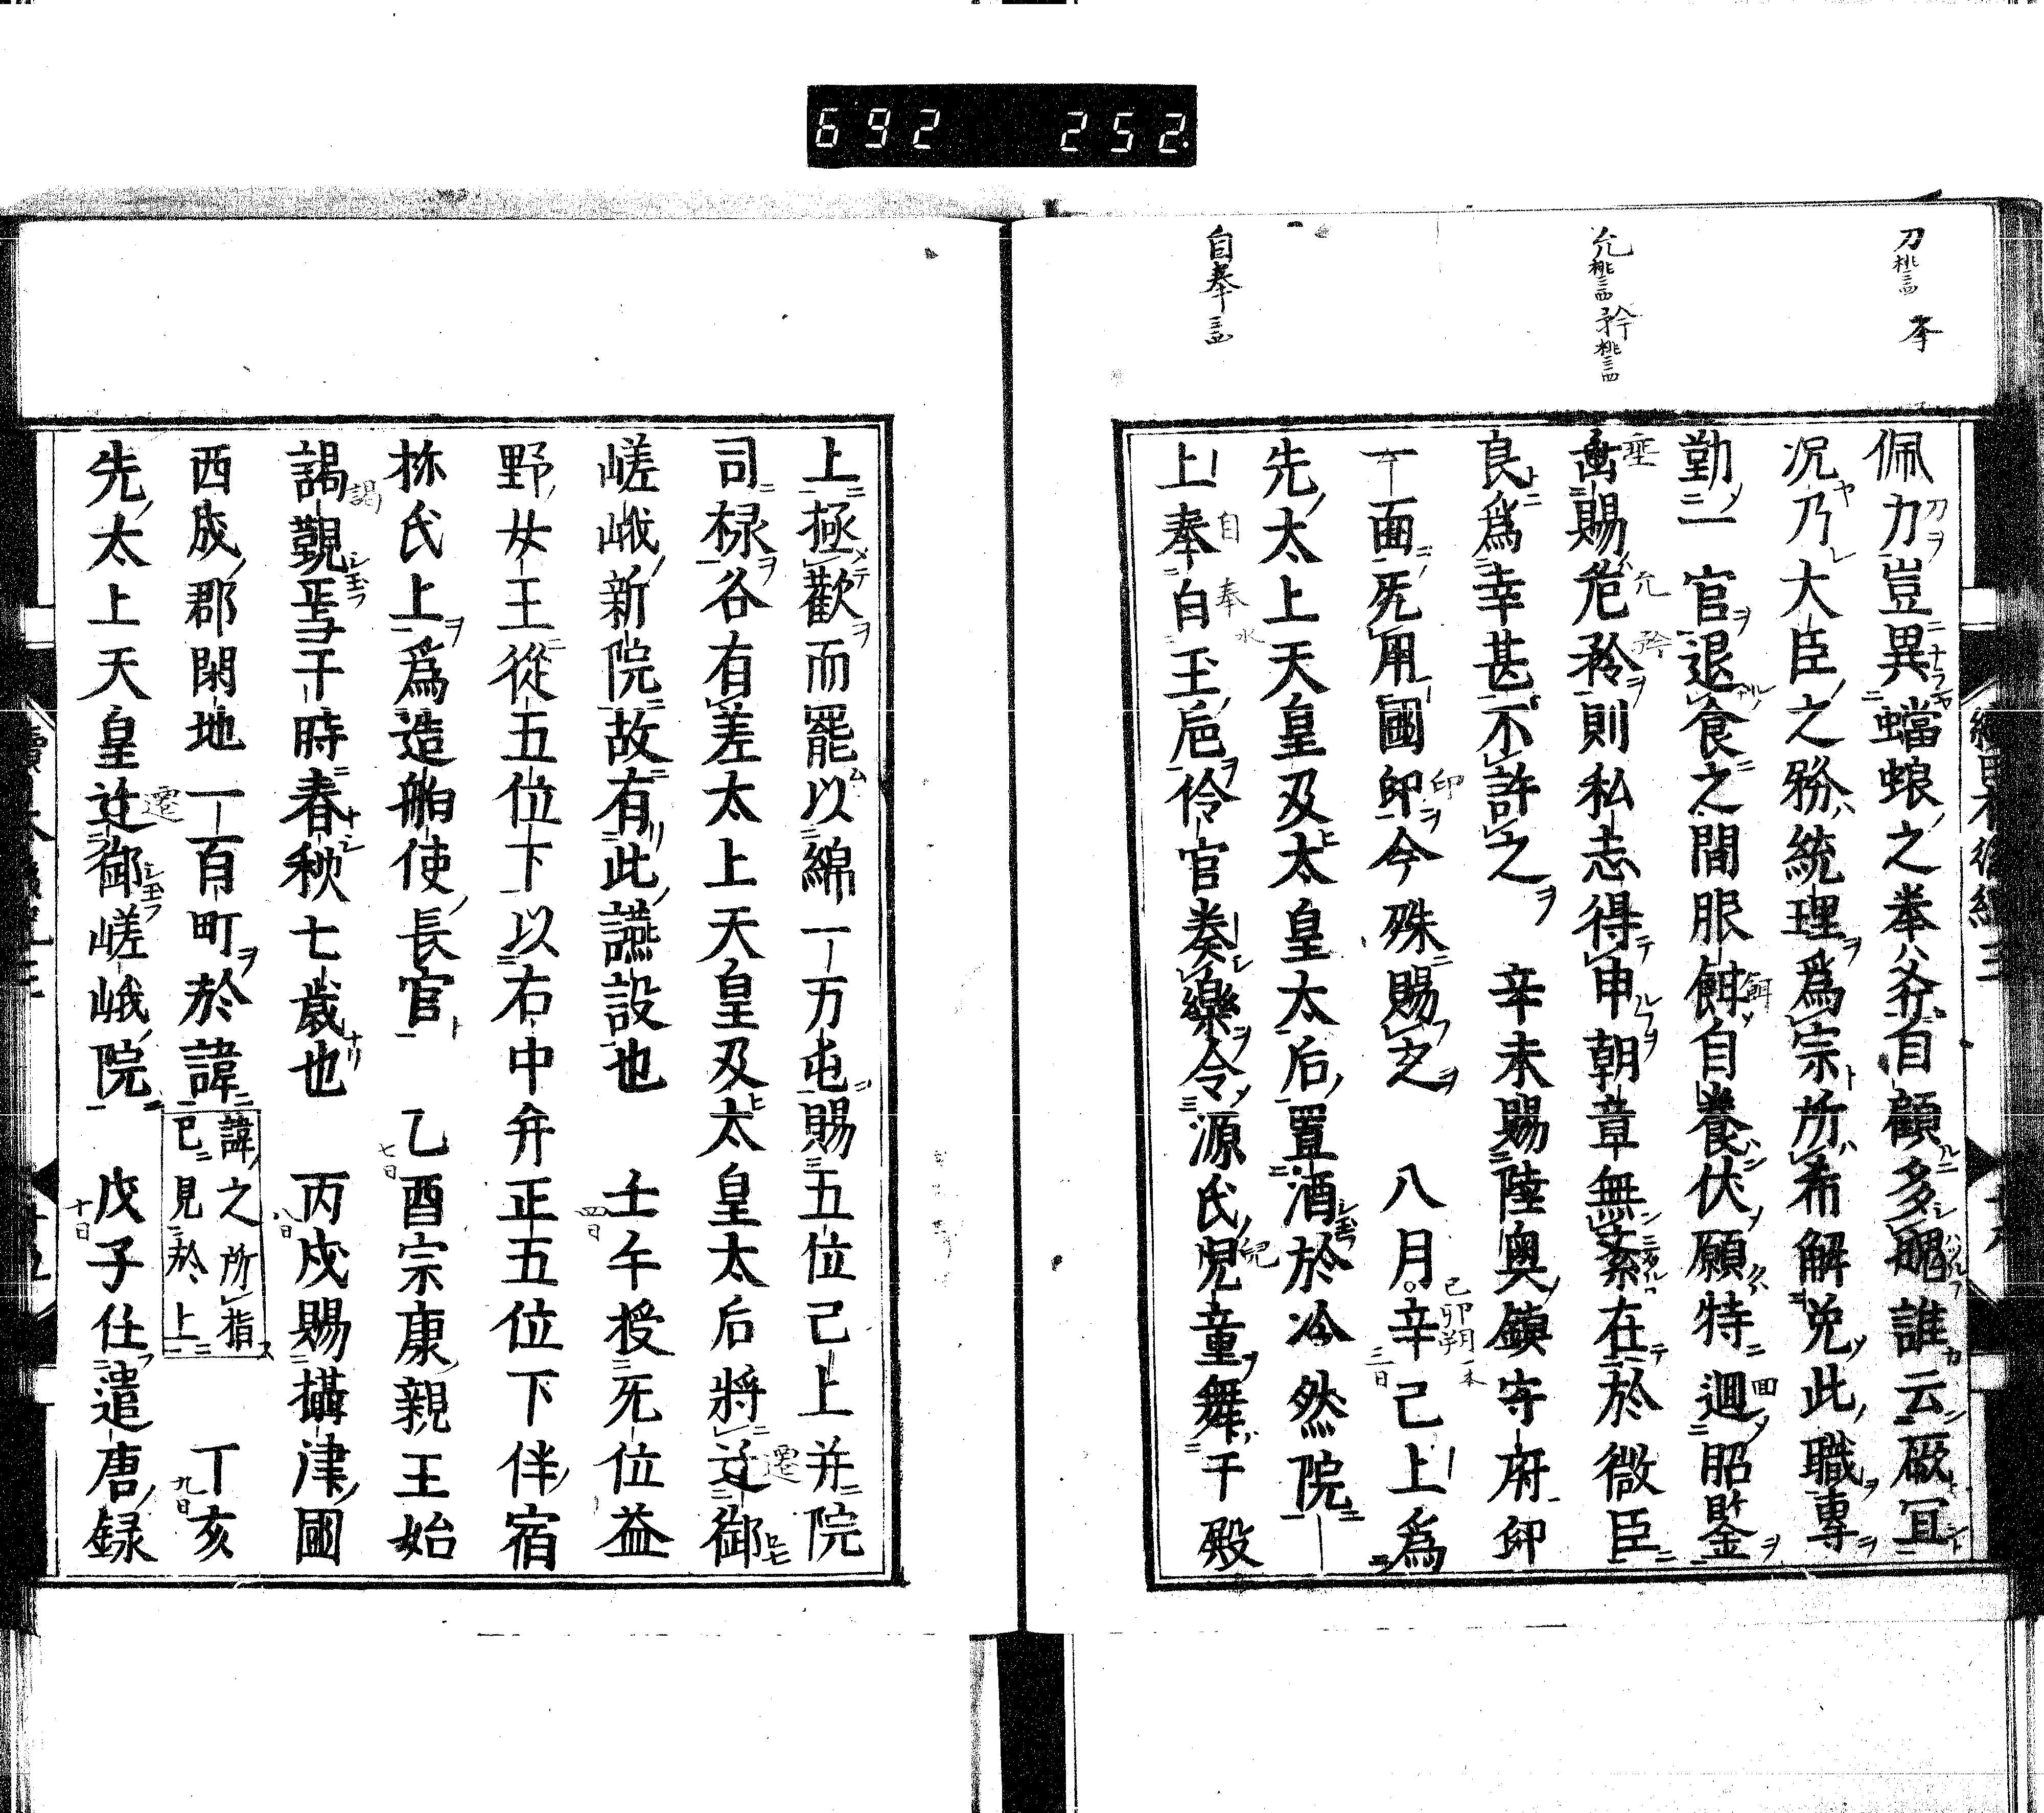 692 252
刀 李
允 矜
自奉
佩力豈異蟷蜋之拳斧自顧多醜誰云厭冝
况乃大臣之務統理爲宗所希解兊此職專
勤一官退食之間服餌自養伏願特廻昭鍳
賜危矜則私志得申朝章無紊在於微臣
良爲幸甚不許之 辛未賜陸奥鎮守府印
一面死用國印今殊賜之 八月辛己上爲
先太上天皇及太皇太后置酒於冷然院
上奉自玉巵伶官奏樂令源氏児童舞于殿
上極歡而罷以綿一万屯賜五位己上并院
司禄各有差太上天皇及太皇太后將迁御
嵯峨新院故有此讌設也 壬午授无位益
野女王從五位下以右中弁正五位下伴宿
祢氏上爲造舶使長官 乙酉宗康親王始
謁覲焉于時春秋七歳也 丙戌賜攝津國
西成郡閑地一百町於諱
諱之所指
已見於上
丁亥
先太上天皇迁御嵯峨院 戊子任遣唐録